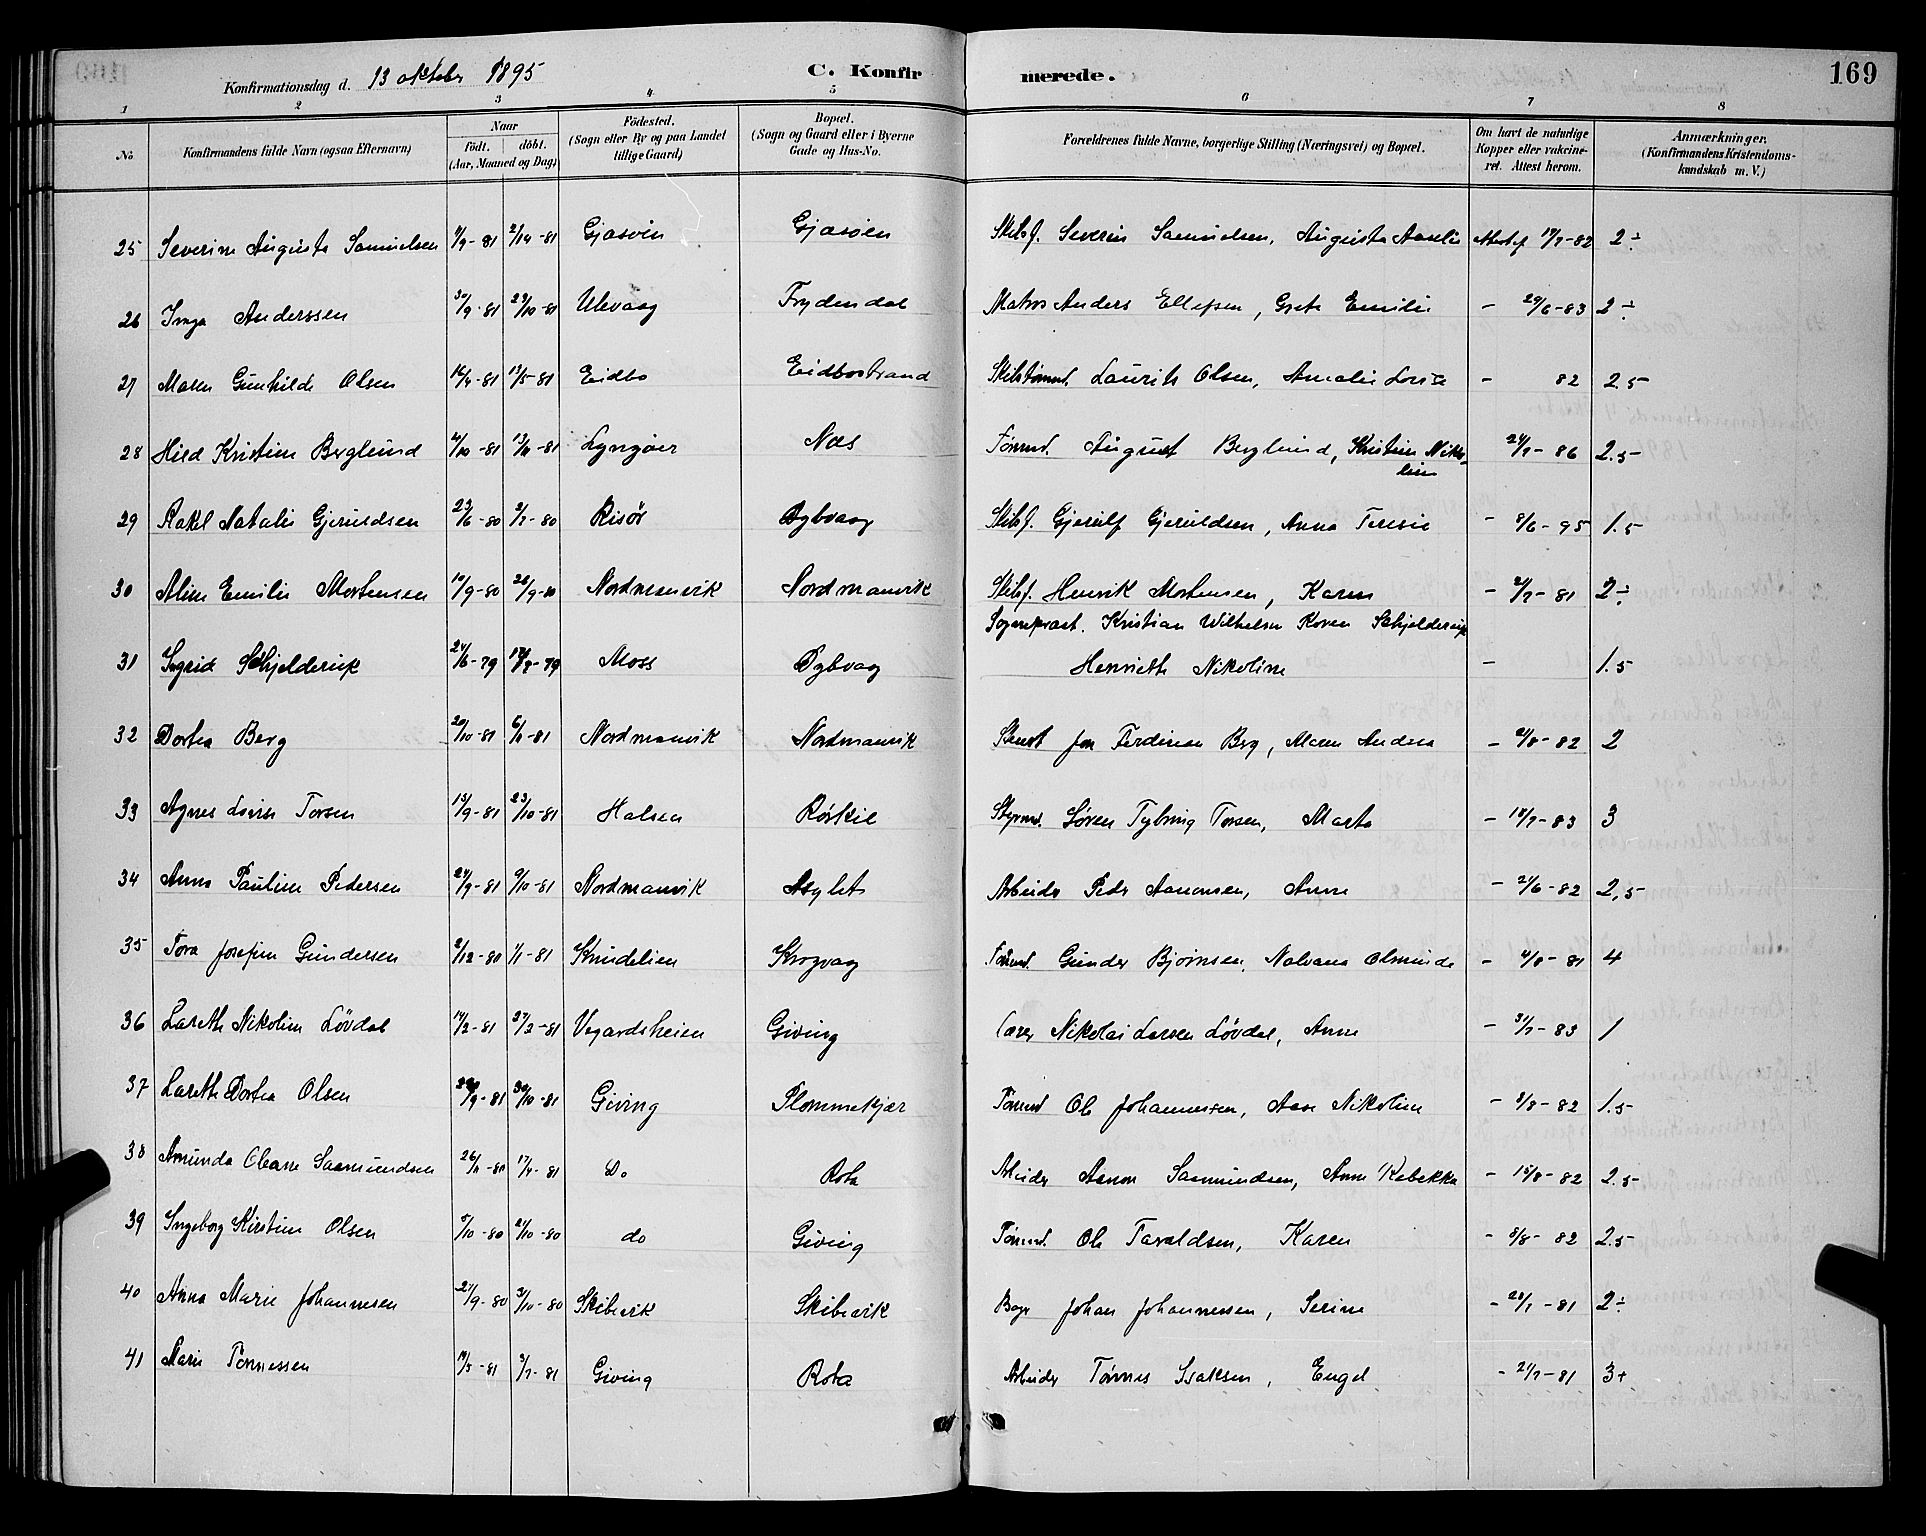 Konfirmationsdag d. 13 oktober 1895 C. Konfirmerede. 169
1 2 3 4 5 6 7 8
No Konfirmandens fulde Navn (ogsaa Efternavn) Naar født. døbt. (Aar, Maaned og Dag) Fødested. (Sogn eller By og paa Landet tillige Gaard) Bopæl. (Sogn og Gaard eller i Byerne Gade og Hus-No. Forældrenes fulde Navne, borgerlige Stilling (Næringsvei) og Bopæl. Om havt de naturlige Kopper eller vakcineret. Attest herom. Anmærkninger. (Konfirmandens Kristendomskundskab m. V.)
25 Severine Auguste Samuelsen 9-81 -81 Gjæsøen Gjæsøen Skibsf. Severin Samuelsen, Augusta Amalie 17/7-82 2÷
26 Inga Anderssen 30/9-81 23/10-81 Ulevaag Frydendal Matros Anders Ellefsen, Grete Emilie - 29/6-83 2÷
27 Maren Gunhilde Olsen 14/4-81 13/5-81 Eidbo Eidbostrand Skibstømmd. Laurits Olsen, Amalie Lovise - 82 2.5
28 Hild Kristine Berglund 4/10-81 13/11-81 Lyngøer Næs Tømmd. August Berglund, Kristine Niko-
line 24/7-86 2.5
29 Rakel Natalie Gjeruldsen 23/6-80 2/7-80 Risør Dybvaag Skibsf. Gjerulf Gjeruldsen, Anna Teresie - 8/6-95 1.5
30 Aline Emilie Mortensen 10/9-80 26/9-80 Nordmanvik Nordmanvik Skibsf. Henrik Mortensen, Karen - 2/7-81 2÷
Sogneprest. Kristian Wilhelm Koren Schjelderup
31 Ingrid Schjelderup 24/6-79 -79 Moss Dybvag Henriette Nikoline - 1.5
32 Dortea Berg 20/10-81 6/11-81 Nordmanvik Nordmanvik Jon Ferdinan Berg, Maren Andrea - 2/8-82 2
33 Agnes Lovise Torsen 13/9-81 23/10-81 Halsen Røskil Styrmd. Søren Tybring Torsen, Marta - 18/7-83 3
34 Anna Pauline Pedersen 24/9-81 9/10-81 Nordmanvik Asylet Arbeider Peder Aanonsen, Anne - 2/6-82 2,5
35 Tora Josefine Gundersen 2/12-80 1/1-81 Knudelien Krogvag Tømmd. Gunder Bjørnsen, Olminde - 4/8-81 4
36 Larette Nikoline Løvdal 14/2-81 27/3-81 Vegardsheien Giving Nikolai Larsen Løvdal, Anne - 3/7-83 1
37 Larette Dortea Olsen 9-81 30/10-81 Giving Plommekjær Tømmd Ole Johannessen, Aase Nikoline - 8/8-82 1.5
38 Amunda Oleane Saamundsen 26/11-80 17/4-81 Do Rota Arbeider Aanon Saamundsen, Anne Rebekka - 15/8-82 2.5
39 Ingeborg Kirstine Olsen 5/10-80 2/10-80 do Giving Tømmd. Ole Taraldsen, Karen - 8/8-82 2.5
40 Anna Marie Johannesen 2/9-80 3/10-80 Skibevik Skibevik Johan Johannessen, Serine - 20/7-81 2÷
41 Marie Tønnessen 14/3-81 3/7-81 Giving Rota Arbeider Tønnes Isaksen, Engel - 21/7-81 3+